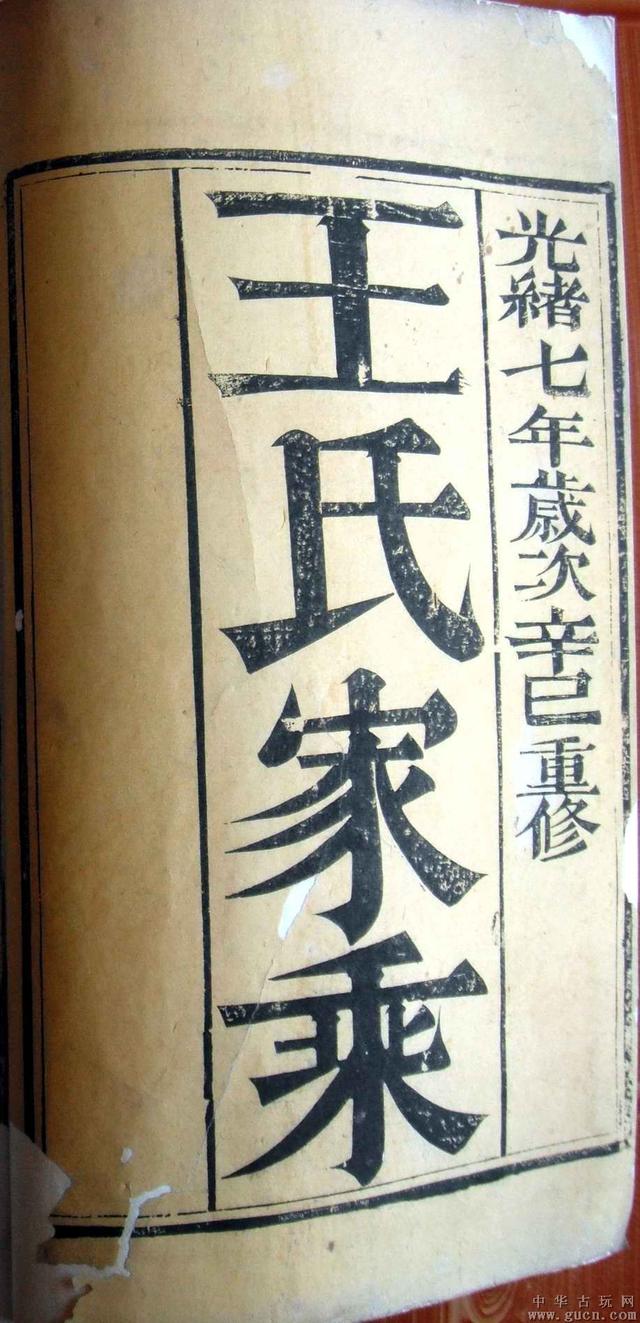 光緒七年歲次辛巳重修
王氏家乘
中华古玩网
www.gucn.com